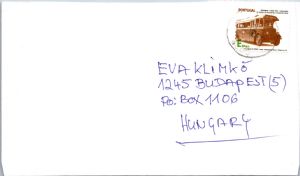 PORTUGAL
EVA KLIMKÓ
1245 BUDAPEST(5)
Po: BOX 1106
HUNGARY